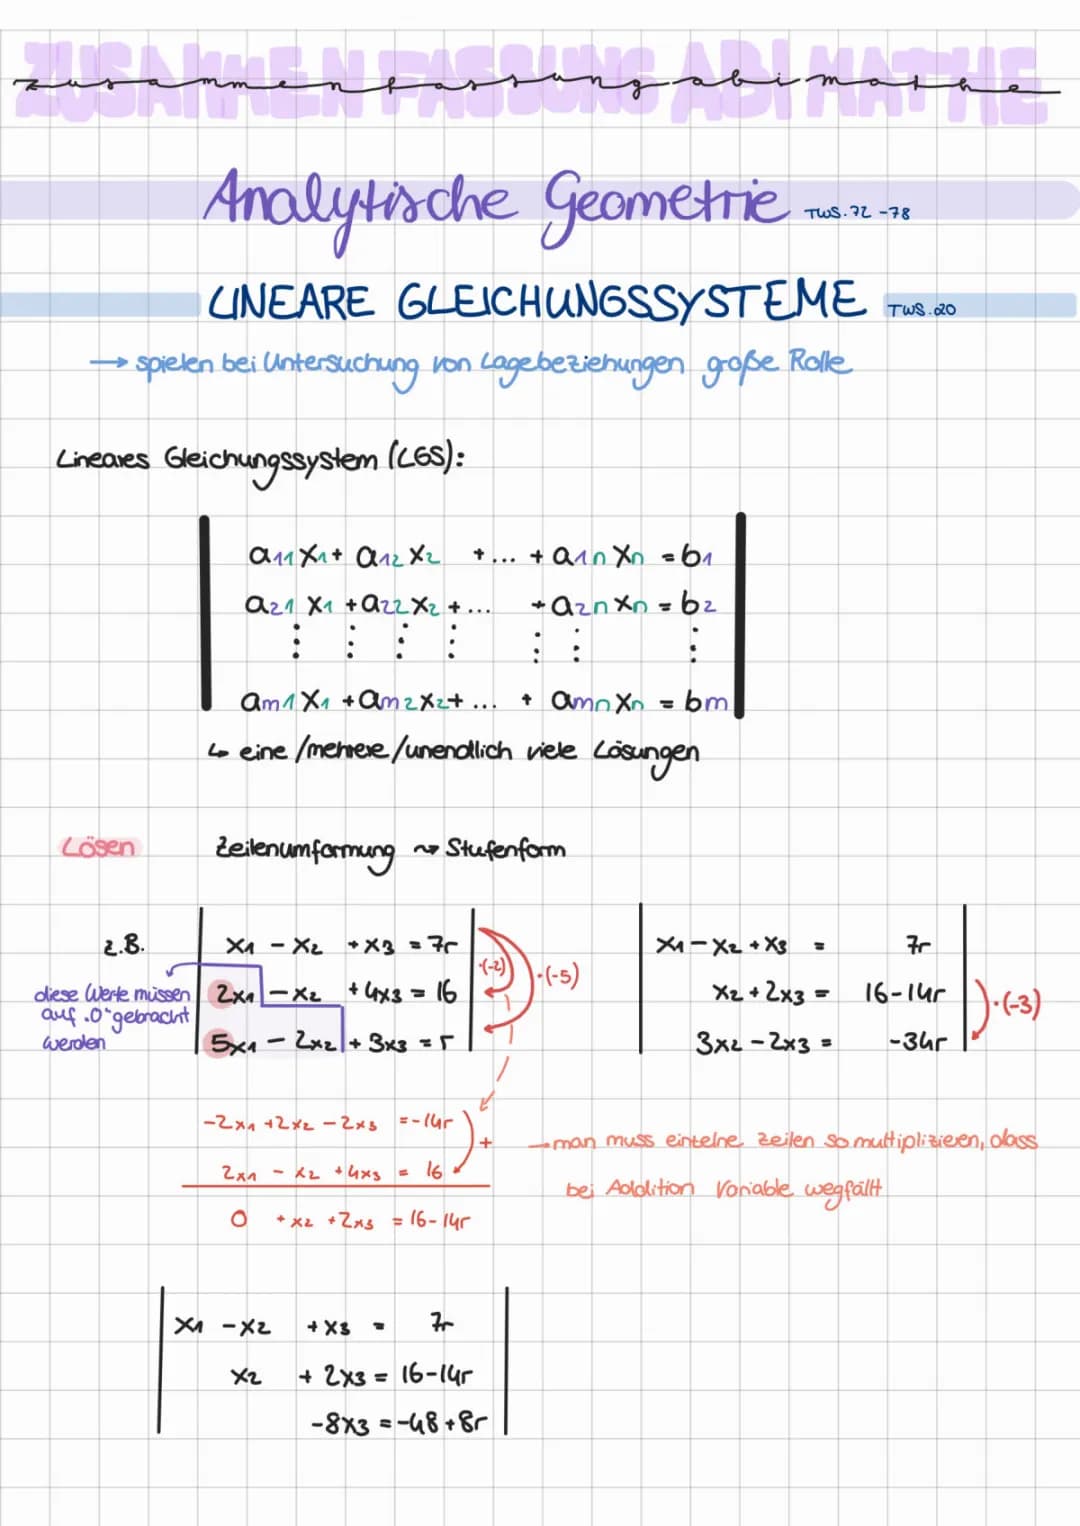 ZUSAMMENFASSUNG ABI MATHE
zusammenfassung abi mathe
Analytische Geometrie TWS. 72 - 78
LINEARE GLEICHUNGSSYSTEME TWS. 20
→ spielen bei Untersuchung von Lagebeziehungen große Rolle
Lineares Gleichungssystem (LGS):
a₁₁ x₁ + a₁₂ x₂ + ... + a₁ₙ xₙ = b₁
a₂₁ x₁ + a₂₂ x₂ + ... + a₂ₙ xₙ = b₂
⋮ ⋮ ⋮ ⋮ ⋮ ⋮ ⋮
aₘ₁ x₁ + aₘ₂ x₂ + ... + aₘₙ xₙ = bₘ
↳ eine /mehrere /unendlich viele Lösungen
Lösen Zeilenumformung ⤳ Stufenform
z.B.
x₁ - x₂ + x₃ = 7r
2x₁ - x₂ + 4x₃ = 16
5x₁ - 2x₂ + 3x₃ = r
·(-2)
·(-5)
diese Werte müssen
auf „0" gebracht
werden
x₁ - x₂ + x₃ = 7r
x₂ + 2x₃ = 16-14r
3x₂ - 2x₃ = -34r
·(-3)
-2x₁ + 2x₂ - 2x₃ = -14r
+
2x₁ - x₂ + 4x₃ = 16
0 + x₂ + 2x₃ = 16-14r
→ man muss einzelne Zeilen so multiplizieren, dass
bei Addition Variable wegfällt
x₁ - x₂ + x₃ = 7r
x₂ + 2x₃ = 16-14r
-8x₃ = -48 + 8r